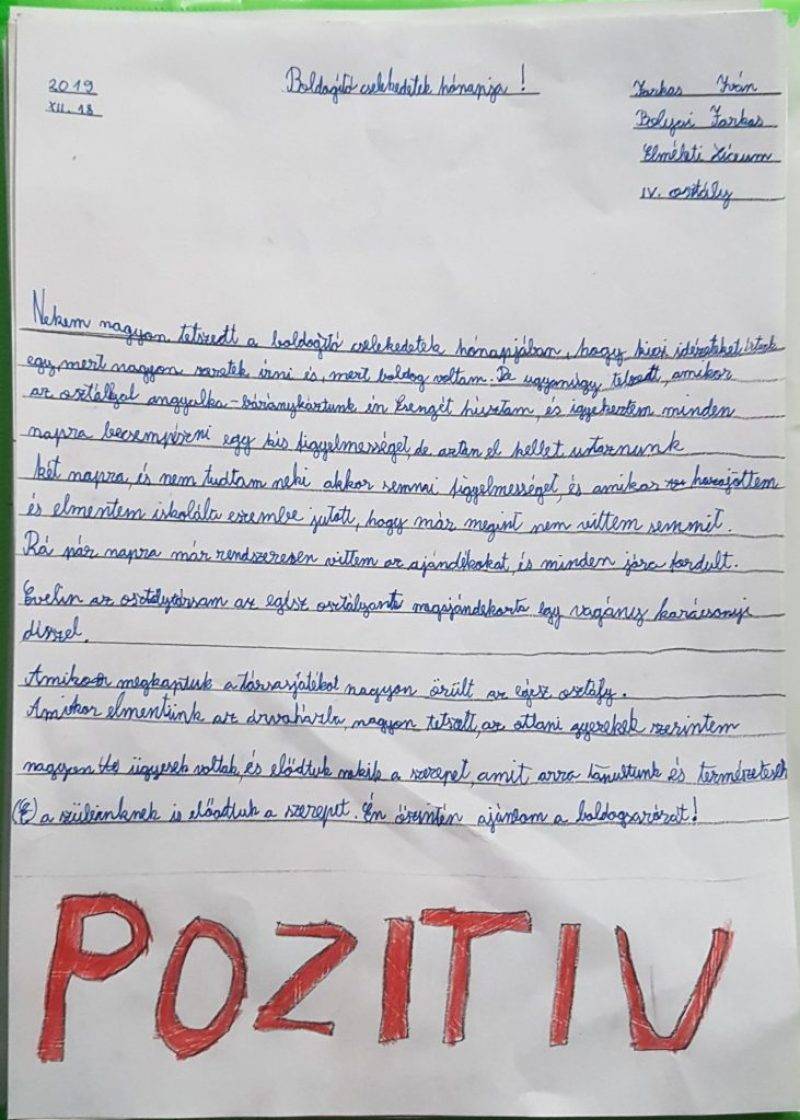 2019
XII. 18
Boldogító cselekedetek hónapja!
Farkas Iván
Bolyai Farkas
Elméleti Líceum
IV. osztály
Nekem nagyon tetszedt a boldogító cselekedetek hónapjában, hogy kicsi idézeteket írtunk
egy, mert nagyon szeretek írni és, mert boldog voltam. De ugyanúgy tetszett, amikor
az osztállyal angyalka-báránykáztunk én Csengét húztam, és igyekeztem minden
napra becsempészni egy kis figyelmességet, de aztán el kellet utaznunk
két napra, és nem tudtam neki akkor semmi figyelmességet, és amikor hazajöttem
és elmentem iskolába eszembe jutott, hogy már megint nem vittem semmit.
Rá pár napra már rendszeresen vittem az ajándékokat, és minden jóra fordult.
Evelin az osztálytársam az egész osztályt megajándékozta egy vagány karácsonyi
díszzel.
Amikor megkaptuk a társasjátékot nagyon örült az egész osztály.
Amikor elmentünk az árvaházba, nagyon tetszett, az ottani gyerekek szerintem
nagyon ügyesek voltak, és elődtuk nekik a szerepet, amit arra tanultunk és természetesen
a szüleinknek is előadtuk a szerepet. Én őszintén ajánlom a boldogságórát!
POZITIV